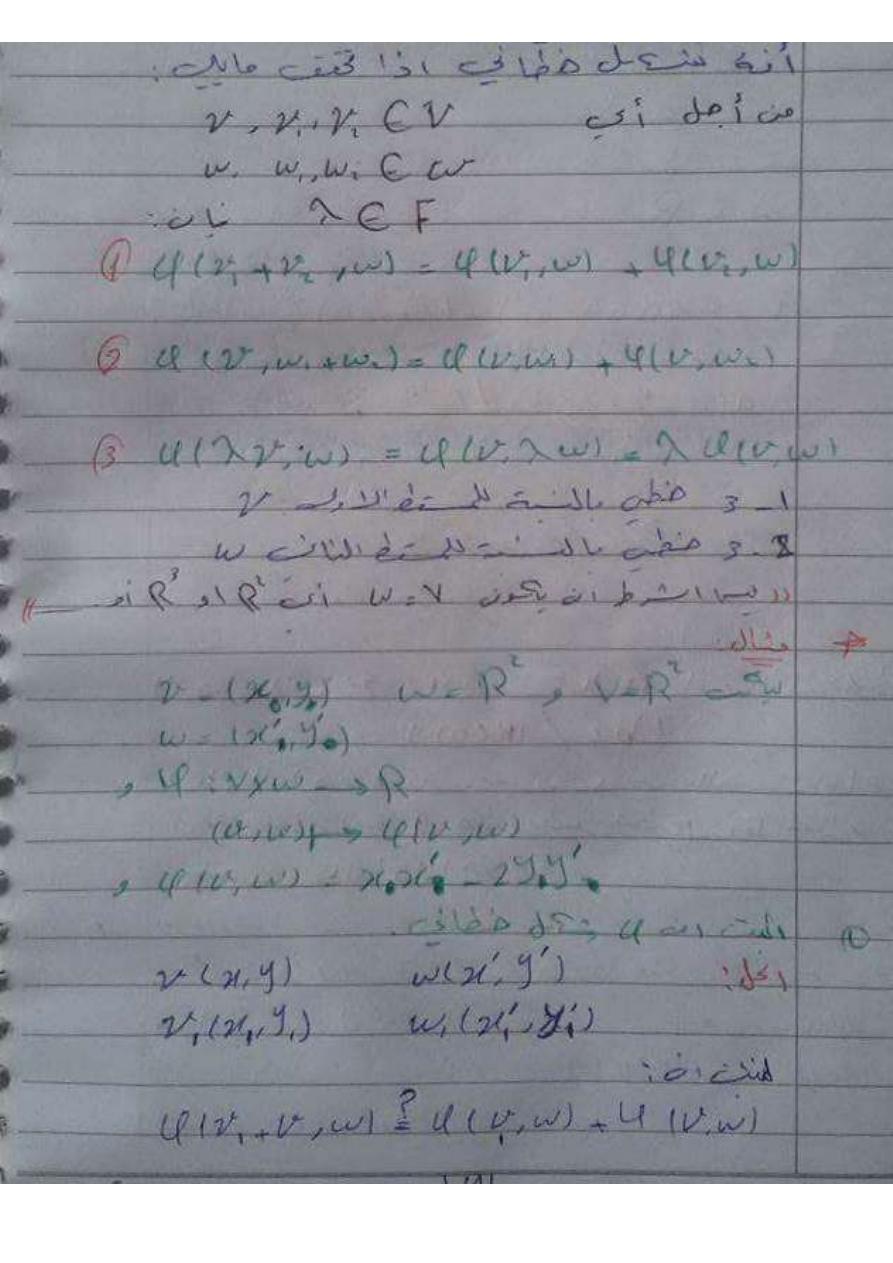 أنه شكل خطاني اذا تحقق مايلي:
من أجل أي v, v₁, v₂ ∈ V
w, w₁, w₂ ∈ w
λ ∈ F فإن:
① φ(v₁+v₂, w) = φ(v₁, w) + φ(v₂, w)
② φ(v, w₁+w₂) = φ(v, w₁) + φ(v, w₂)
③ φ(λv, w) = φ(v, λw) = λφ(v, w)
1-3 خطي بالنسبة للمسقط الاول v
2-3 خطي بالنسبة للمسقط الثاني w
((ليس اشرط ان يكون w = V أي R² او R³ أو ــــ))
مثال:
ليكن V=R² و w=R² v=(x,y)
w=(x′,y′)
و φ: V×w → R
(v,w) ↦ φ(v,w)
و φ(v,w) = xx′ - 2yy′
① اثبت ان φ شكل خطاني.
الحل: v(x,y) w(x′,y′)
v₁(x₁,y₁) w₁(x₁′,y₁′)
لنثبت ان:
φ(v₁+v, w) ≟ φ(v₁, w) + φ(v, w)